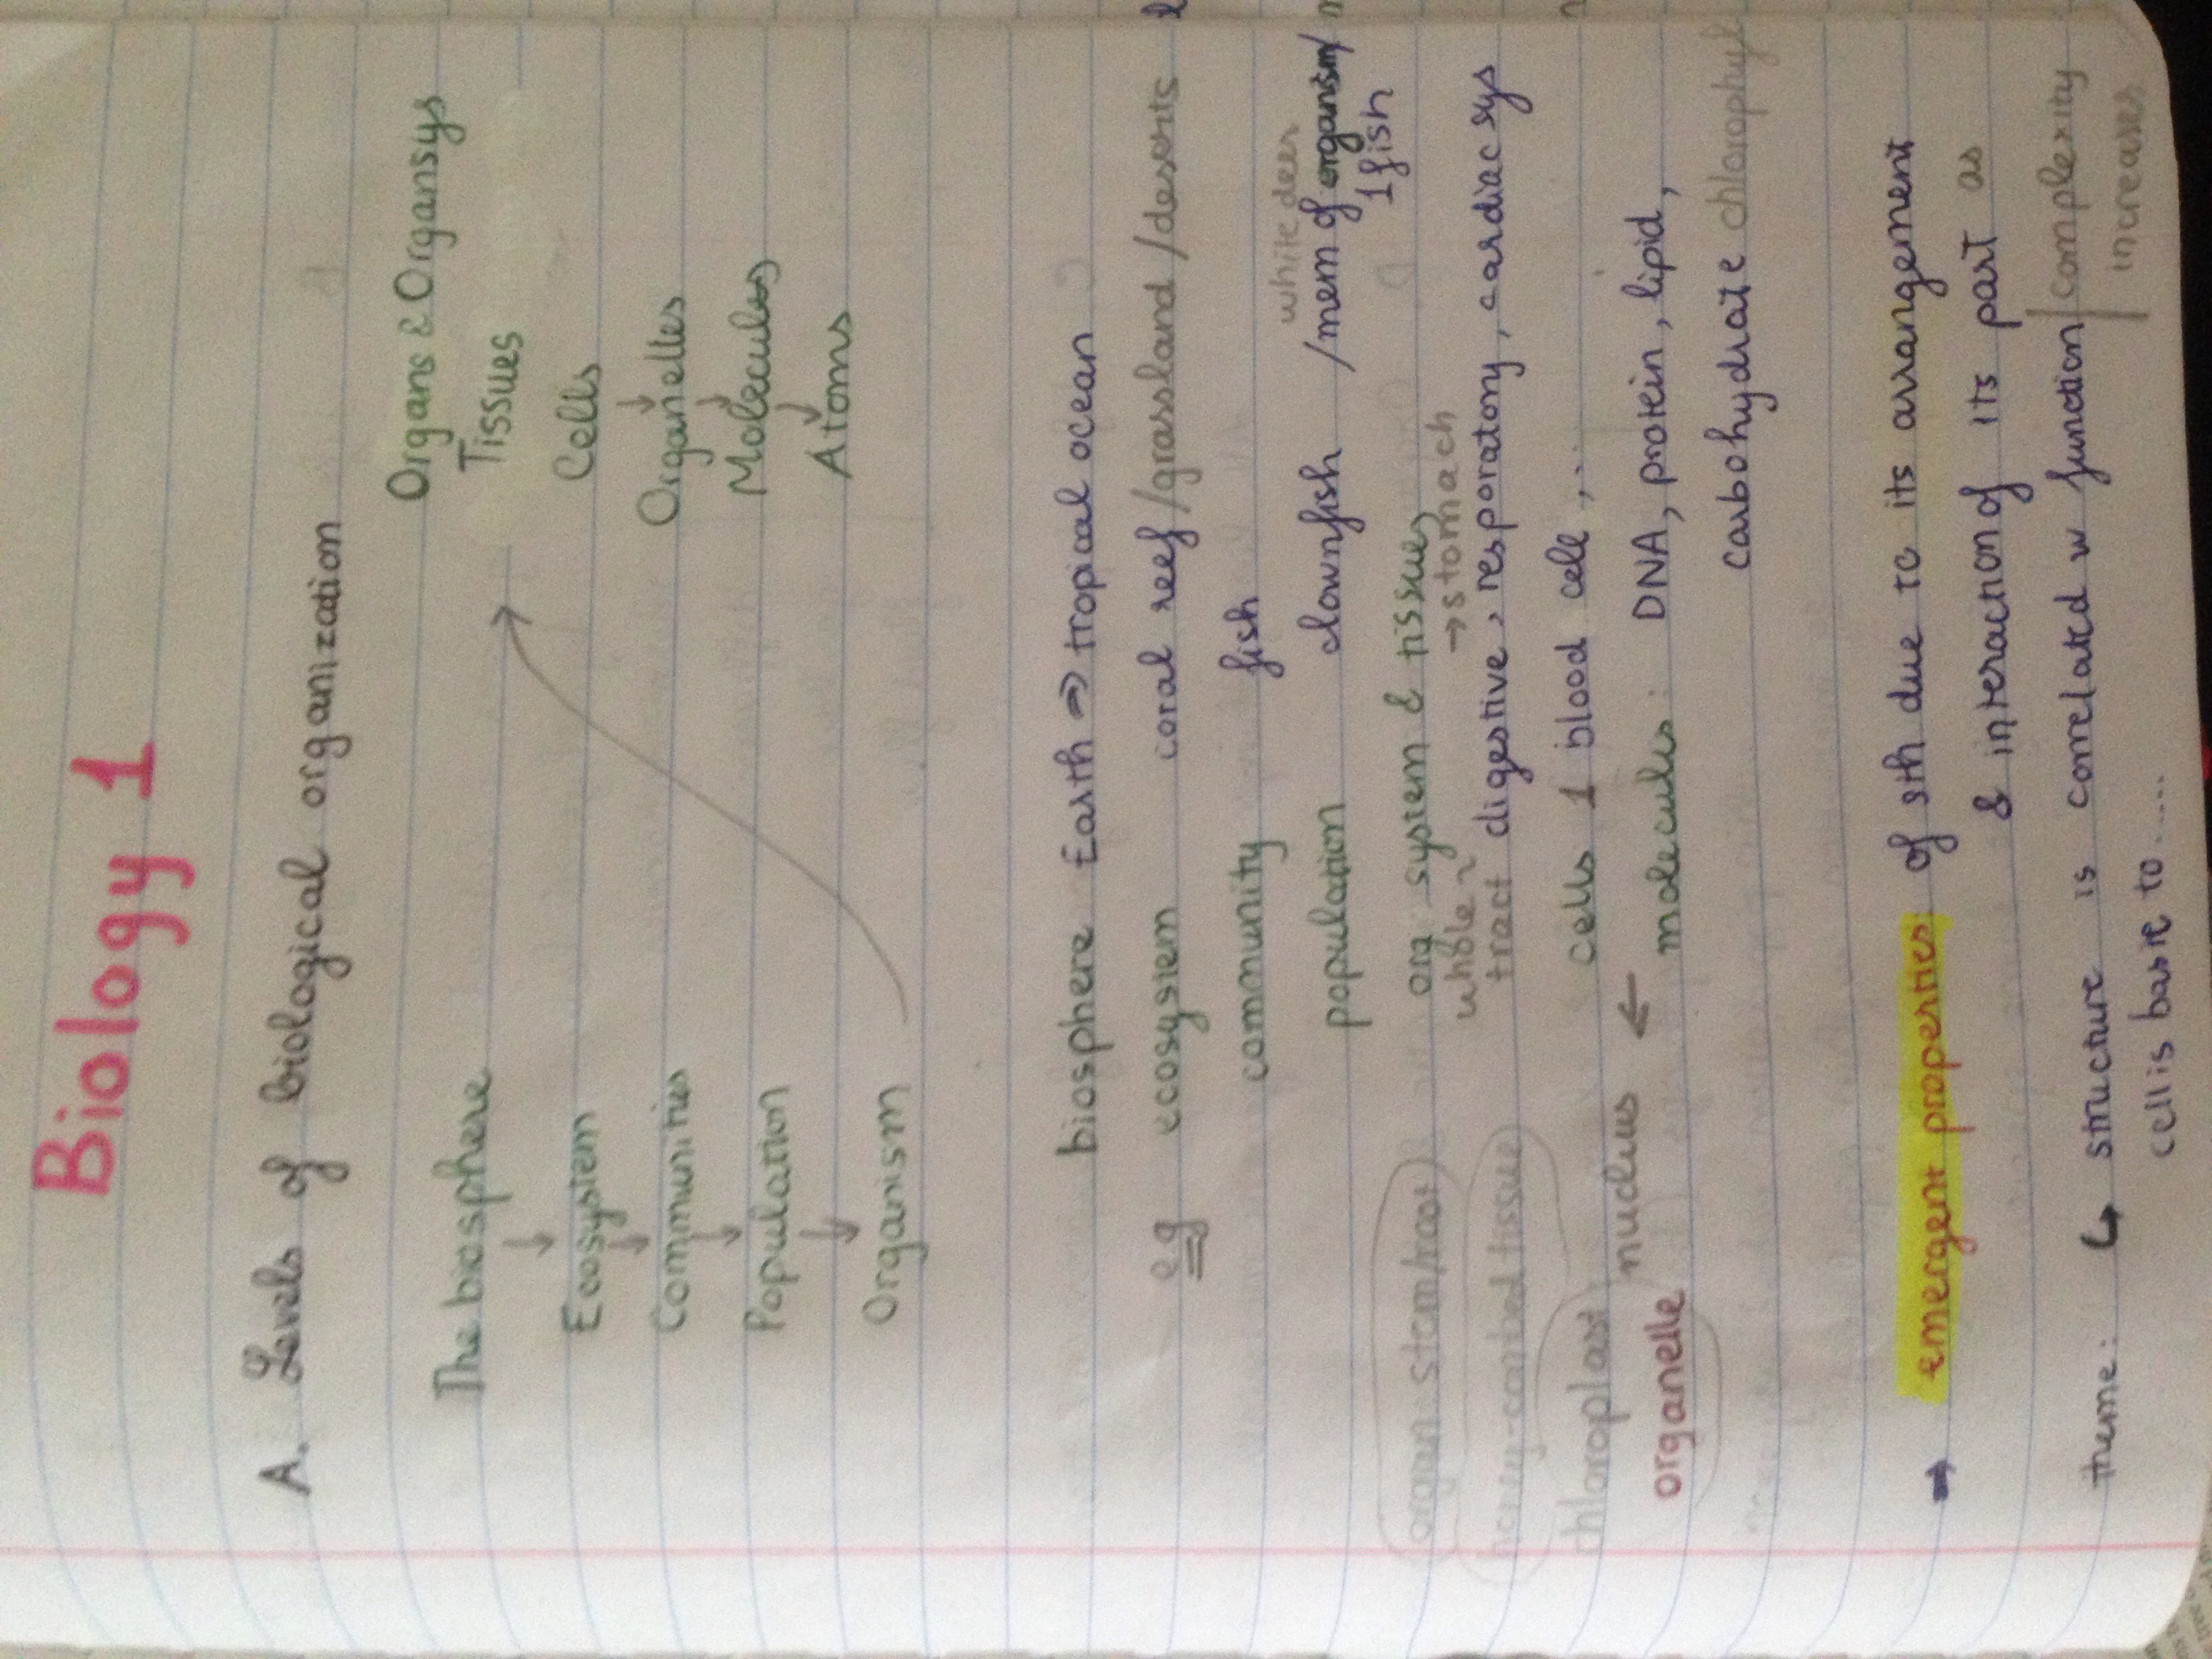 Biology 1
A. Levels of biological organization
The biosphere
Ecosystem
Communities
Population
Organism
Organs & Organsys
Tissues
Cells
Organelles
Molecules
Atoms
eg
biosphere Earth ⇒ tropical ocean
ecosystem coral reef /grassland /deserts
community fish
white deer
population clownfish /mem of organism/
1 fish
(organ stem/root) org system & tissues
whole → stomach
tract digestive, resporatory, cardiac sys
cells 1 blood cell, ...
chloroplast nucleus ← molecules: DNA, protein, lipid,
organelle
carbohydrate chlorophyl
→ emergent properties of sth due to its arrangement
& interaction of its part as
complexity
increases
theme: ↳ structure is correlated w function
cell is basic to .....